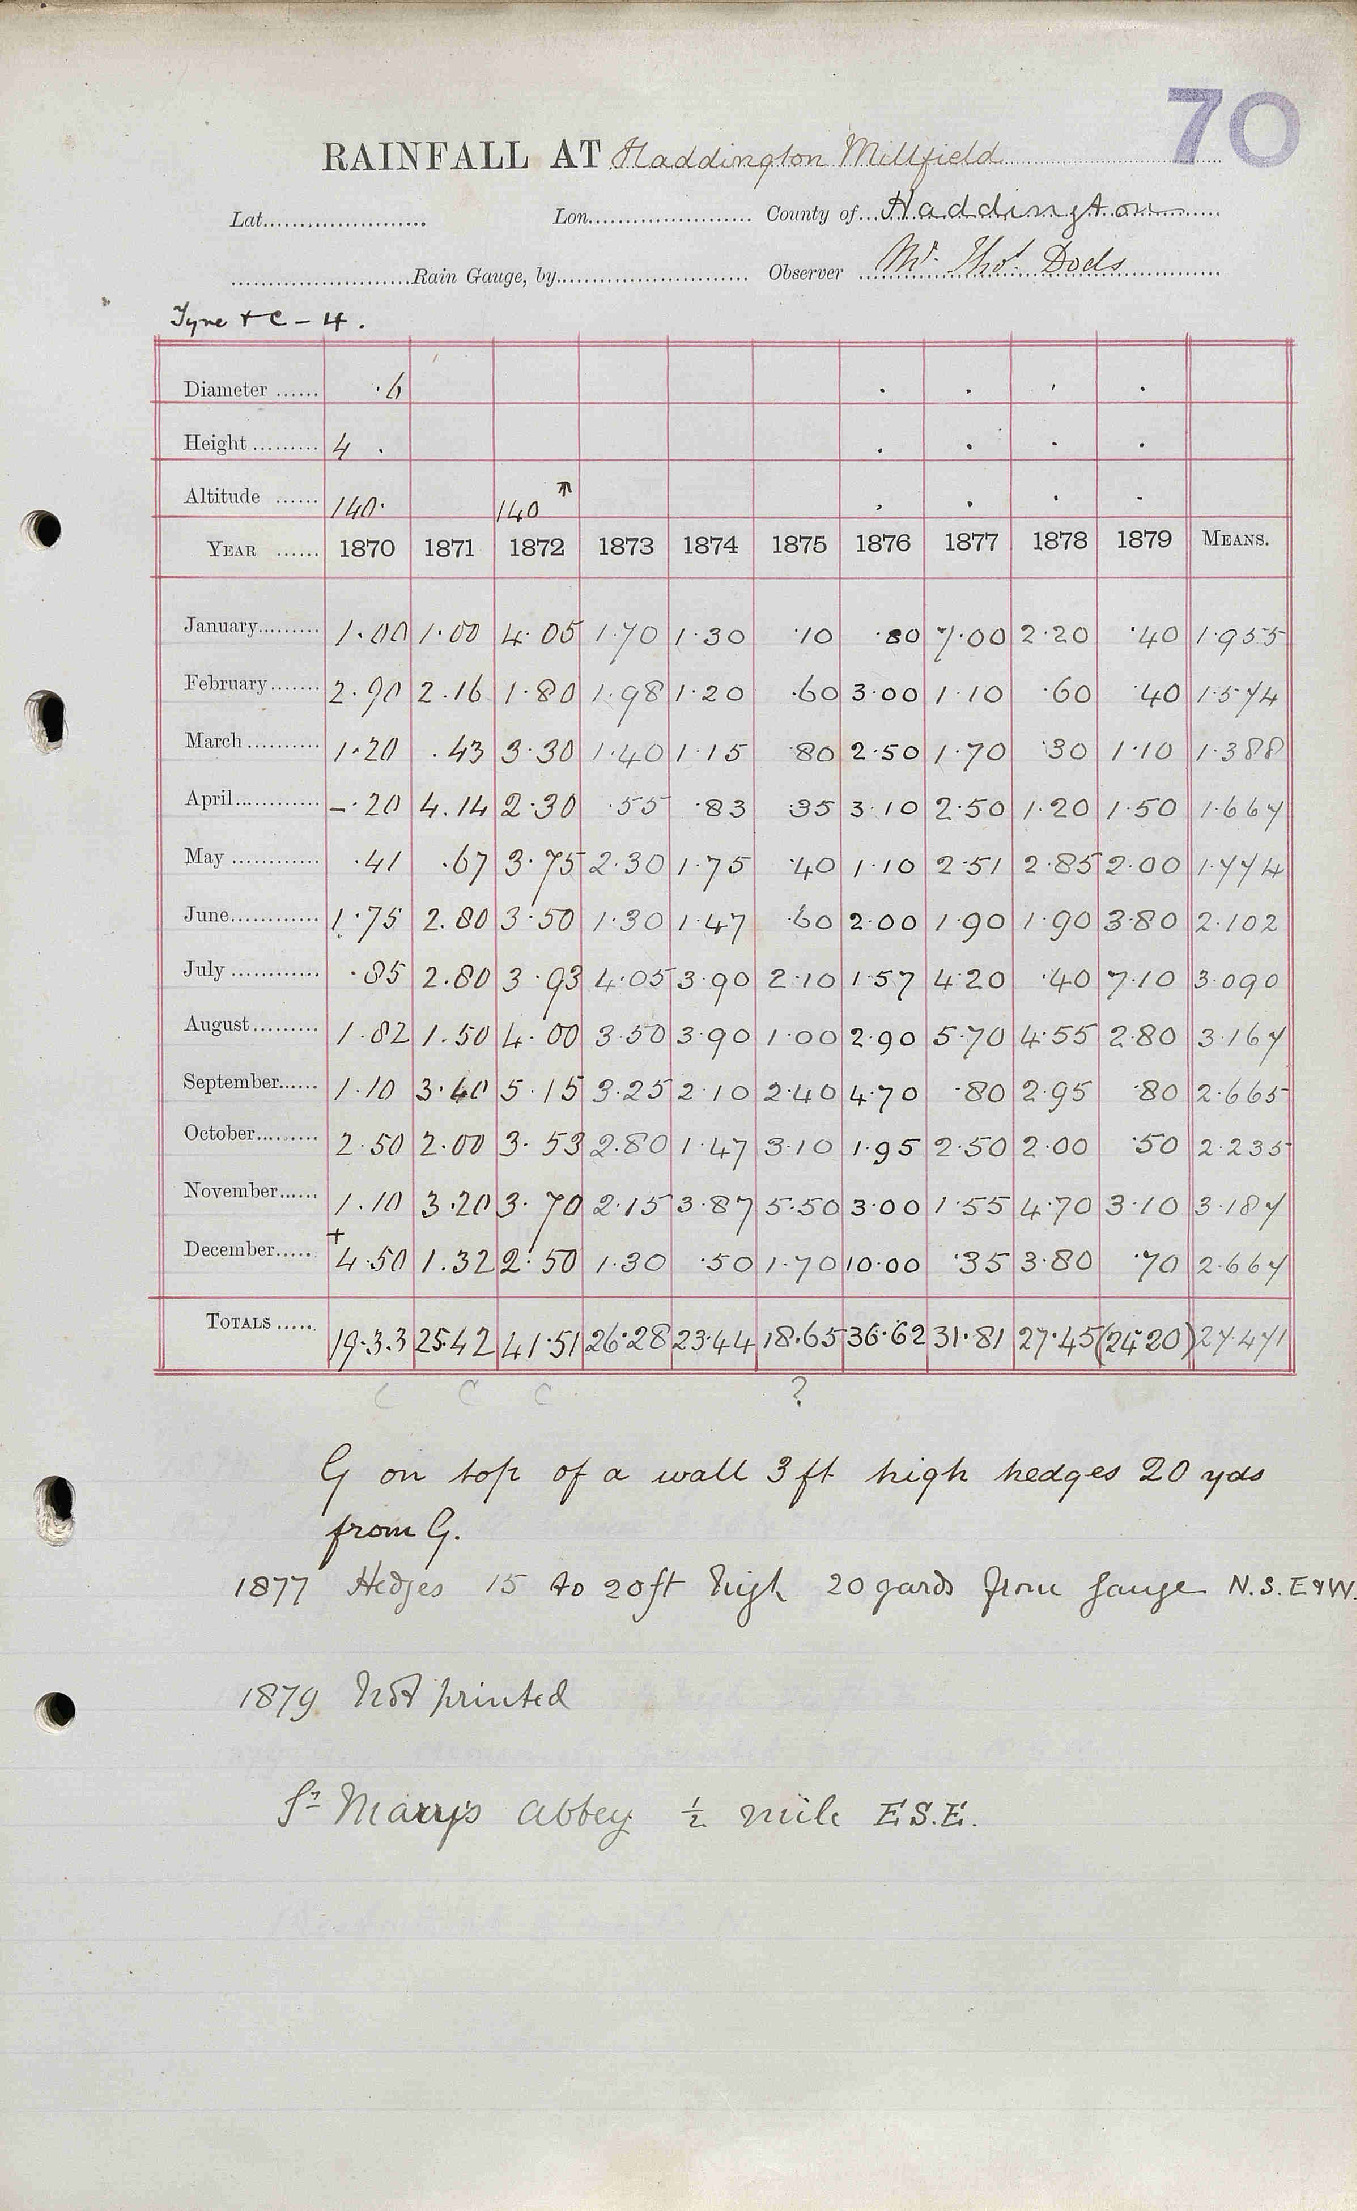 70
RAINFALL AT Haddington Millfield
Lat. Lon. County of Haddington
Rain Gauge, by Observer Mr. Thos. Dods
Tyne + C - 4.
Diameter ·6
Height 4 .
Altitude 140· 140 ↑
YEAR 1870 1871 1872 1873 1874 1875 1876 1877 1878 1879 MEANS.
January 1.00 1.00 4.05 1.70 1.30 .10 .80 7.00 2.20 .40 1.955
February 2.90 2.16 1.80 1.98 1.20 .60 3.00 1.10 .60 .40 1.574
March 1.20 .43 3.30 1.40 1.15 .80 2.50 1.70 .30 1.10 1.388
April -.20 4.14 2.30 .55 .83 .35 3.10 2.50 1.20 1.50 1.667
May .41 .67 3.75 2.30 1.75 .40 1.10 2.51 2.85 2.00 1.774
June 1.75 2.80 3.50 1.30 1.47 .60 2.00 1.90 1.90 3.80 2.102
July .85 2.80 3.93 4.05 3.90 2.10 1.57 4.20 .40 7.10 3.090
August 1.82 1.50 4.00 3.50 3.90 1.00 2.90 5.70 4.55 2.80 3.167
September 1.10 3.40 5.15 3.25 2.10 2.40 4.70 .80 2.95 .80 2.665
October 2.50 2.00 3.53 2.80 1.47 3.10 1.95 2.50 2.00 .50 2.235
November 1.10 3.20 3.70 2.15 3.87 5.50 3.00 1.55 4.70 3.10 3.187
December + 4.50 1.32 2.50 1.30 .50 1.70 10.00 .35 3.80 .70 2.667
TOTALS 19.33 25.42 41.51 26.28 23.44 18.65 36.62 31.81 27.45 (24.20) 27.471
C C C ?
G on top of a wall 3 ft high hedges 20 yds
from G.
1877 Hedges 15 to 20 ft high 20 yards from gauge N.S.E & W.
1879 Not printed
St Marys Abbey ½ mile E S.E.